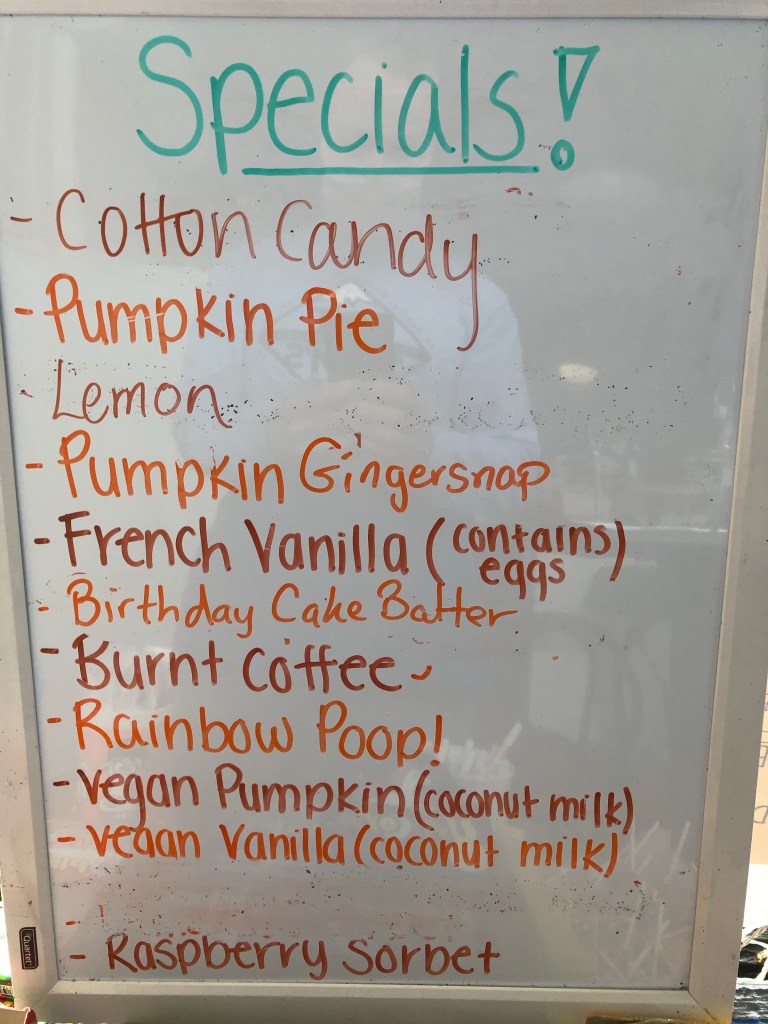 Specials!
- Cotton Candy
- Pumpkin Pie
Lemon
- Pumpkin Gingersnap
- French Vanilla (contains eggs)
- Birthday Cake Batter
- Burnt Coffee
- Rainbow Poop!
- Vegan Pumpkin (coconut milk)
- Vegan Vanilla (coconut milk)
-
- Raspberry Sorbet
Quartet